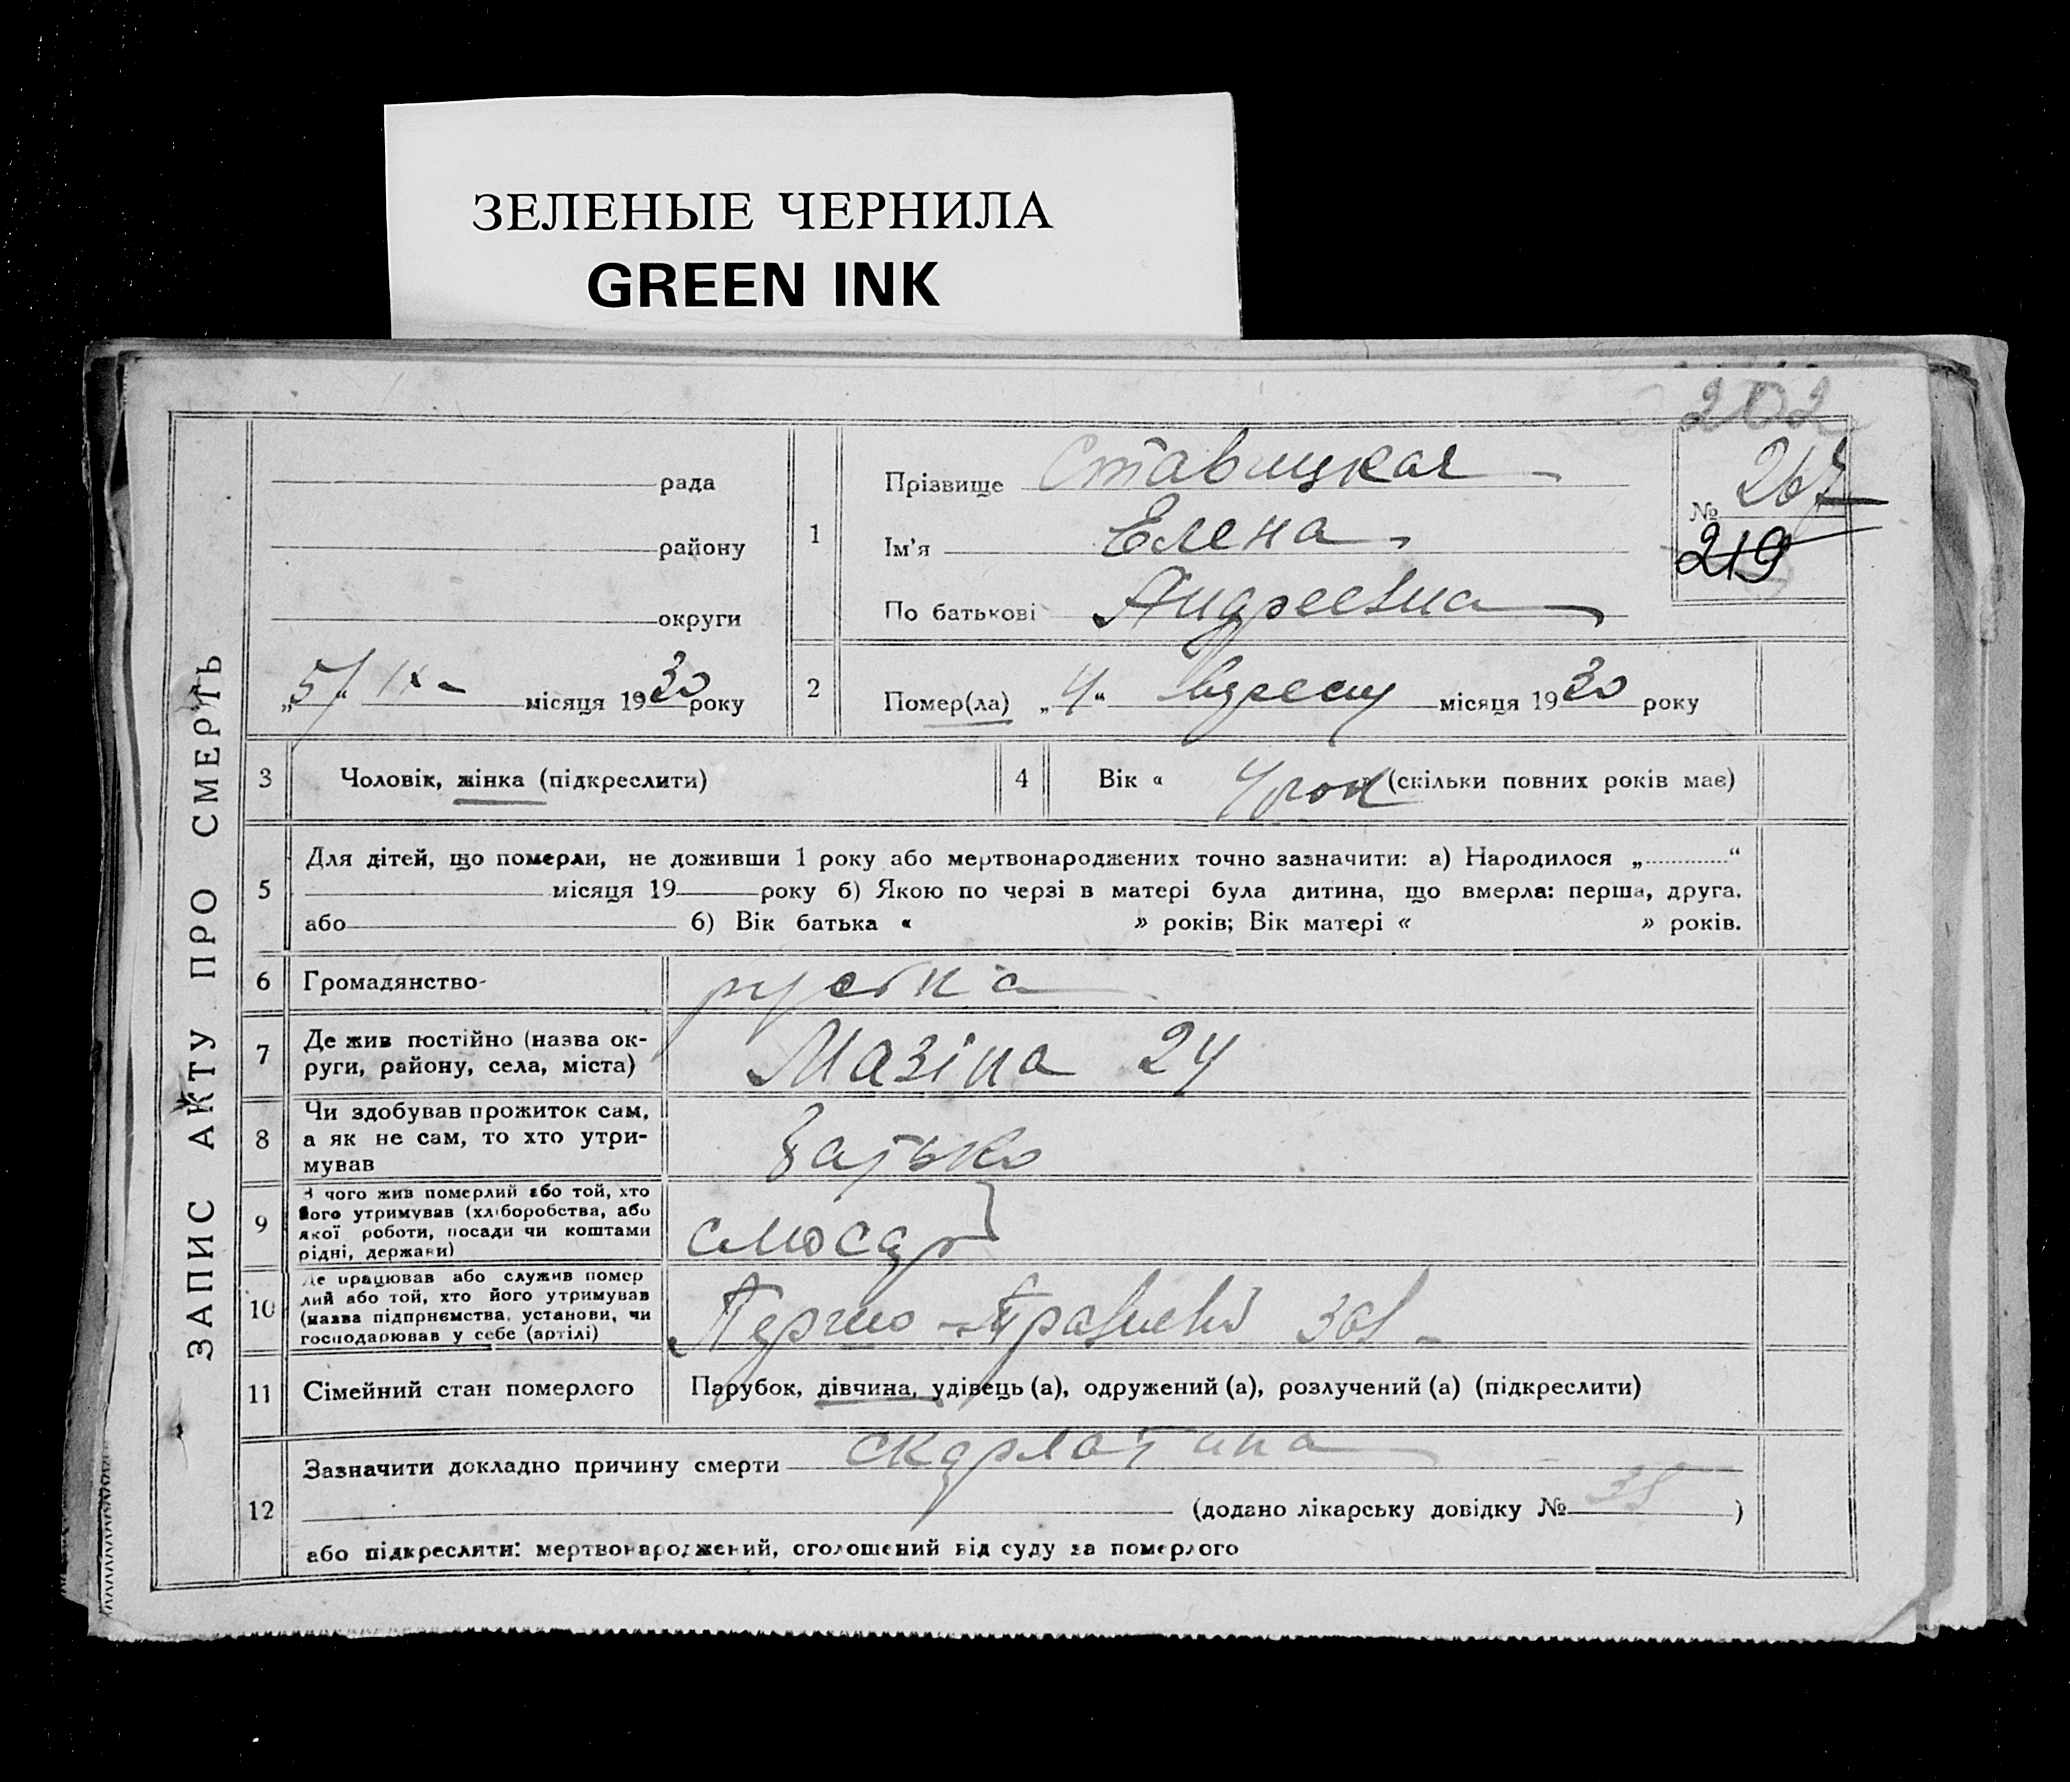 ЗЕЛЕНЫЕ ЧЕРНИЛА
GREEN INK
202
ЗАПИС АКТУ ПРО СМЕРТЬ
рада
району
округи
„5“ IX місяця 1930 року
1
Прізвище Ставицкая
Ім'я Елена
По батькові Андреевна
№ 267
219
2
Помер(ла) „4“ вересня місяця 1930 року
3
Чоловік, жінка (підкреслити)
4
Вік « 4 рок (скільки повних років має)
5
Для дітей, що померли, не доживши 1 року або мертвонароджених точно зазначити: а) Народилося „ “
місяця 19 року б) Якою по черзі в матері була дитина, що вмерла: перша, друга.
або б) Вік батька « » років; Вік матері « » років.
6
Громадянство-
руська
7
Де жив постійно (назва ок-
руги, району, села, міста)
Мазіпа 24
8
Чи здобував прожиток сам,
а як не сам, то хто утри-
мував
батько
9
З чого жив померлий або той, хто
його утримував (хліборобства, або
якої роботи, посади чи коштами
рідні, держави)
слюсар
10
Де працював або служив помер
лий або той, хто його утримував
(назва підприємства, установи, чи
господарював у себе (артілі)
11
Сімейний стан померлого
Парубок, дівчина, удівець (а), одружений (а), розлучений (а) (підкреслити)
12
Зазначити докладно причину смерти скарлатина
(додано лікарську довідку № )
або підкреслити: мертвонароджений, оголошений від суду за померлого